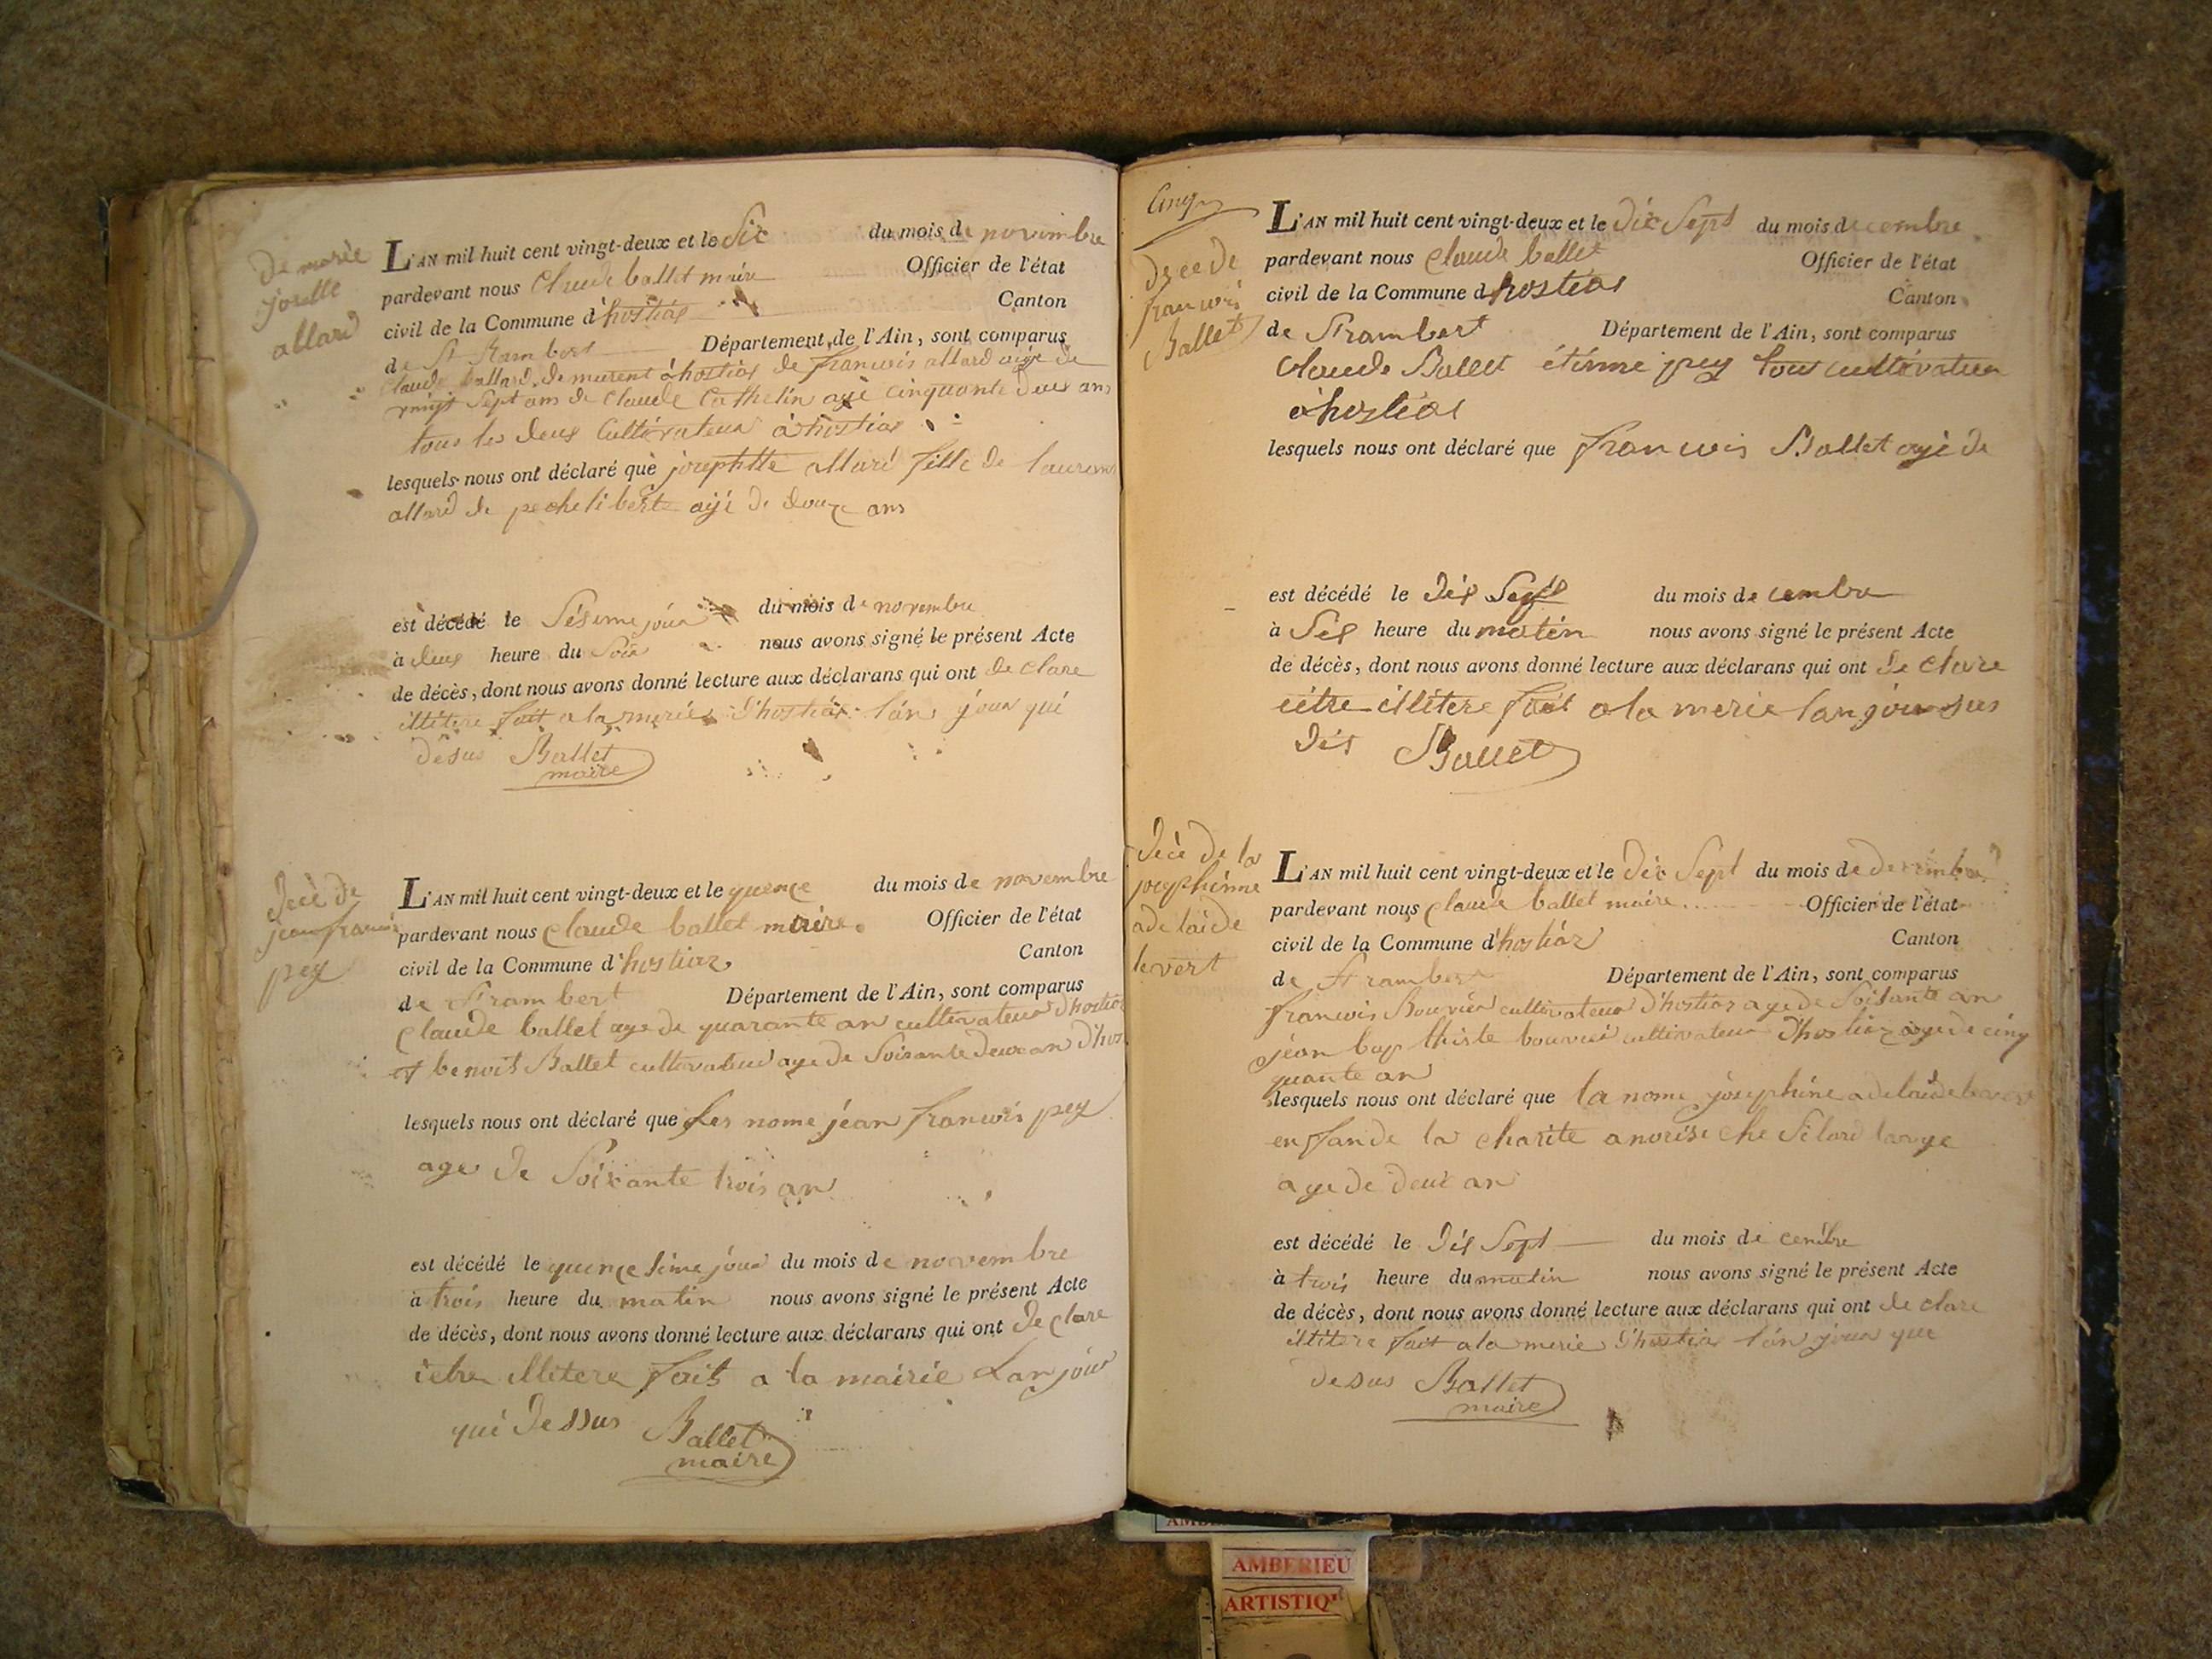 de marie
josette
allard
L'AN mil huit cent vingt-deux et le Sic du mois de novembre
pardevant nous Claude ballet maire Officier de l'état
civil de la Commune d'hostias Canton
de St Rambert Département de l'Ain, sont comparus
Claude ballard demurent à hostias de francois allard agé de
vingt Sept ans de Claude Cathelin agé cinquante deux ans
tous les deux Cultivateur à hostias
lesquels nous ont déclaré que josephtte allard fille de laurent
allard de pechelibert agé de douze ans
est décédé le Siseme jour du mois de novembre
à deux heure du Soir nous avons signé le présent Acte
de décès, dont nous avons donné lecture aux déclarans qui ont de clare
illitere fait a la merie d'hostias l'an jour qui
desus Ballet
maire
decè de
jean francois
pey
L'AN mil huit cent vingt-deux et le quence du mois de novembre
pardevant nous Claude ballet maire Officier de l'état
civil de la Commune d'hostiaz Canton
de St rambert Département de l'Ain, sont comparus
Claude ballet age de quarante an cultivateur d'hostiaz
et benoit Ballet cultivateur age de Soisante deux an d'hos
lesquels nous ont déclaré que Les nome jéan francois pey
age de Soixante trois an
est décédé le quence sime jour du mois de novembre
à trois heure du matin nous avons signé le présent Acte
de décès, dont nous avons donné lecture aux déclarans qui ont de clare
ietre illitere fait a la mairie Lan jour
qui dessus Ballet
maire
Cinq
decede
francois
Ballet
L'AN mil huit cent vingt-deux et le dix Sept du mois decembre
pardevant nous Claude ballet Officier de l'état
civil de la Commune d'hostias Canton
de St rambert Département de l'Ain, sont comparus
Claude Ballet étiénne pey tous cultivateur
à hostias
lesquels nous ont déclaré que francois Ballet agé de
est décédé le dix Sept du mois de cembre
à Six heure du matin nous avons signé le présent Acte
de décès, dont nous avons donné lecture aux déclarans qui ont de clare
iétre illitere fait a la merie lan jour sus
dis Ballet
decè de la
josephinne
adelaide
levert
L'AN mil huit cent vingt-deux et le dix Sept du mois de decembre
pardevant nous Claude ballet maire Officier de l'état
civil de la Commune d'hostiaz Canton
de St rambert Département de l'Ain, sont comparus
francois Bouvier cultivateur d'hostiaz age de Soisante an
jéan bapthiste bouvier cultivateur d'hostiaz age de cinq
quante an
lesquels nous ont déclaré que la nome joséphine adelaide levert
enfande la charite a norise che
age de deux an
est décédé le dix Sept du mois de cembre
à trois heure du matin nous avons signé le présent Acte
de décès, dont nous avons donné lecture aux déclarans qui ont de clare
illitere fait a la merie d'hostias l'an jour que
desus Ballet
maire
AMBERIEU
ARTISTIQ